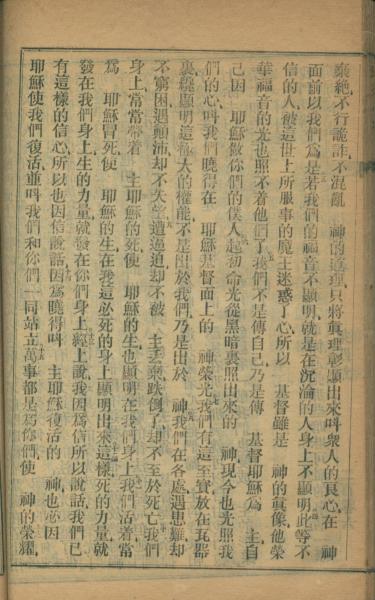 棄絶不行詭詐不混亂 神的道理只將眞理彰顯出來呌衆人的良心在 神
面前以我們爲是若我們的福音不顯明就是在沉淪的人身上不顯明此等不
信的人被這世上所服事的魔王迷惑了心所以 基督雖是 神的眞像他榮
華福音的光也照不着他們了我們不是傳自己乃是傳 基督耶穌爲 主自
己因 耶穌做你們的僕人起初命光從黑暗裏照出來的 神現今也光照我
們的心呌我們曉得在 耶穌基督面上的 神榮光我們有這至寶放在瓦器
裏纔顯明這極大的權能不是出於我們乃是出於 神我們在各處遇患難却
不窮困遇顚沛却不失望遭逼迫却不被 主丟棄跌倒了却不至於死亡我們
身上常常帶着 主耶穌的死使 耶穌的生也顯明在我們身上我們活着當
爲 耶穌冒死使 耶穌的生在我這必死的身上顯明出來這樣死的力量就
發在我們身上生的力量就發在你們身上經上說我因爲信所以說話我們已
有這樣的信心所以也因信說話因爲曉得呌 主耶穌復活的 神也必因
耶穌使我們復活並呌我們和你們一同站立萬事都是爲你們使 神的榮耀